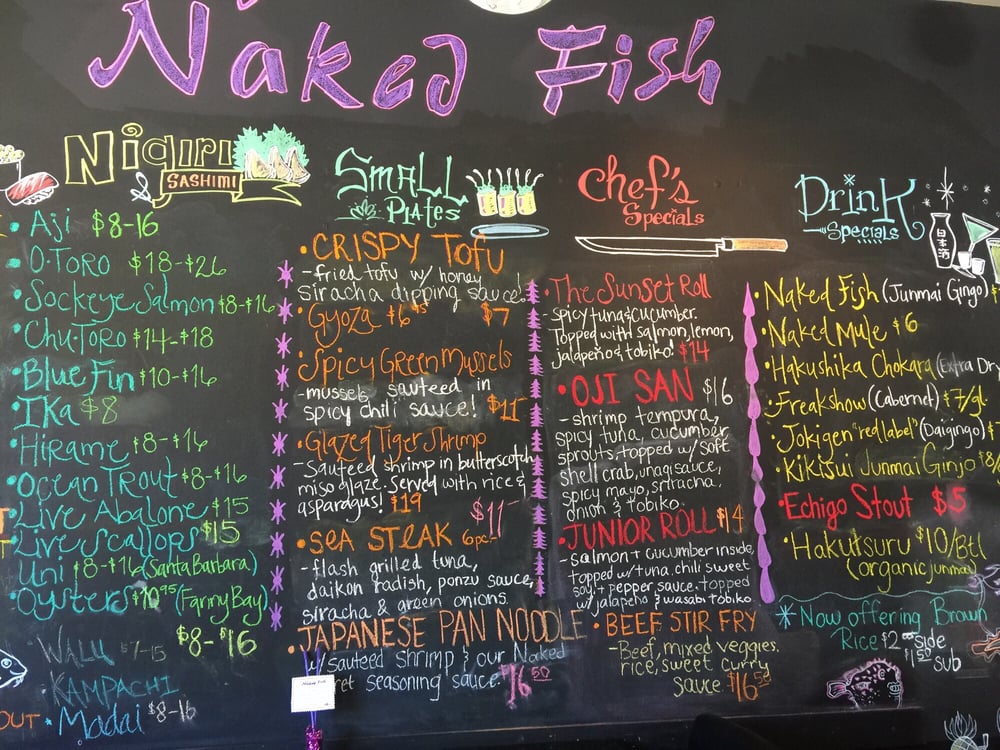 Naked Fish
Nigiri
& SASHIMI
• Aji $8-16
• O-TORO $18-$26
• Sockeye Salmon $8-$16
• Chu-TORO $14-$18
• Blue Fin $10-$16
• IKa $8
• Hirame $8-$16
• Ocean Trout $8-$16
• Live Abalone $15
• Live Scallops $15
Uni $8-$16 (Santa Barbara)
• Oysters $10.95 (Fanny Bay)
$8-$16
WALU $7-15
• KAMPACHI
OUT • Madai $8-16
SMALL
PLATES
• CRISPY TOFU
- fried tofu w/ honey
siracha dipping sauce!
$7
• Gyoza $6.95
• Spicy Green Mussels
- mussels sauteed in
spicy chili sauce! $11
• Glazed Tiger Shrimp
- Sauteed shrimp in butterscotch
miso glaze. Served with rice &
asparagus! $19
• SEA STEAK 6pc. $11
- flash grilled tuna,
daikon radish, ponzu sauce,
siracha & green onions.
• JAPANESE PAN NOODLE
w/ Sauteed shrimp & our Naked
seasoning sauce. $16.50
Chef's
Specials
• The Sunset Roll
- Spicy tuna & cucumber.
Topped with salmon, lemon,
jalapeño & tobiko! $14
• OJI SAN $16
- shrimp tempura,
spicy tuna, cucumber
sprouts, topped w/ soft
shell crab, unagi sauce,
spicy mayo, sriracha,
onion & tobiko.
• JUNIOR ROLL $14
- Salmon + cucumber inside,
topped w/ tuna, chili sweet
soy, + pepper sauce. topped
w/ jalapeño & wasabi tobiko.
• BEEF STIR FRY
- Beef, mixed veggies,
rice, sweet curry
sauce. $16.50
Drink
Specials
日本酒
• Naked Fish (Junmai Gingo)
• Naked Mule $6
• Hakushika Chokara (Extra Dry
• Freakshow (Cabernet) $7/gl.
• Jokigen "red label" (Daigingo)
• Kikisui Junmai Ginjo $8/
• Echigo Stout $5
• Hakutsuru $10/Btl
(organic junmai)
Now offering Brown
Rice $2.00 side
$1.50 sub